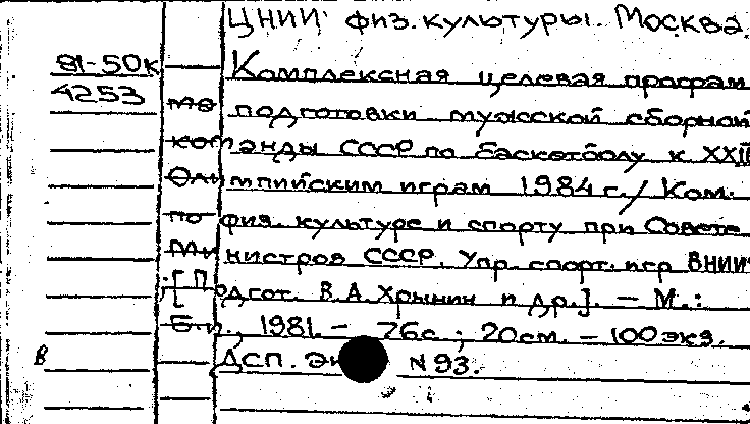 ЦНИИ физ. культуры. Москва.
81-50к Комплексная целевая програм
4253 ма подготовки мужской сборной
команды СССР по баскетболу к XXIII
Олимпийским играм 1984 г. / Ком.
по физ. культуре и спорту при Совете
Министров СССР. Упр. спорт. игр ВНИИ
[Подгот. В.А. Хрынин и др.]. – М.:
Б.и., 1981. – 76с.; 20см. – 100 экз.
В ДСП. Эк N 93.